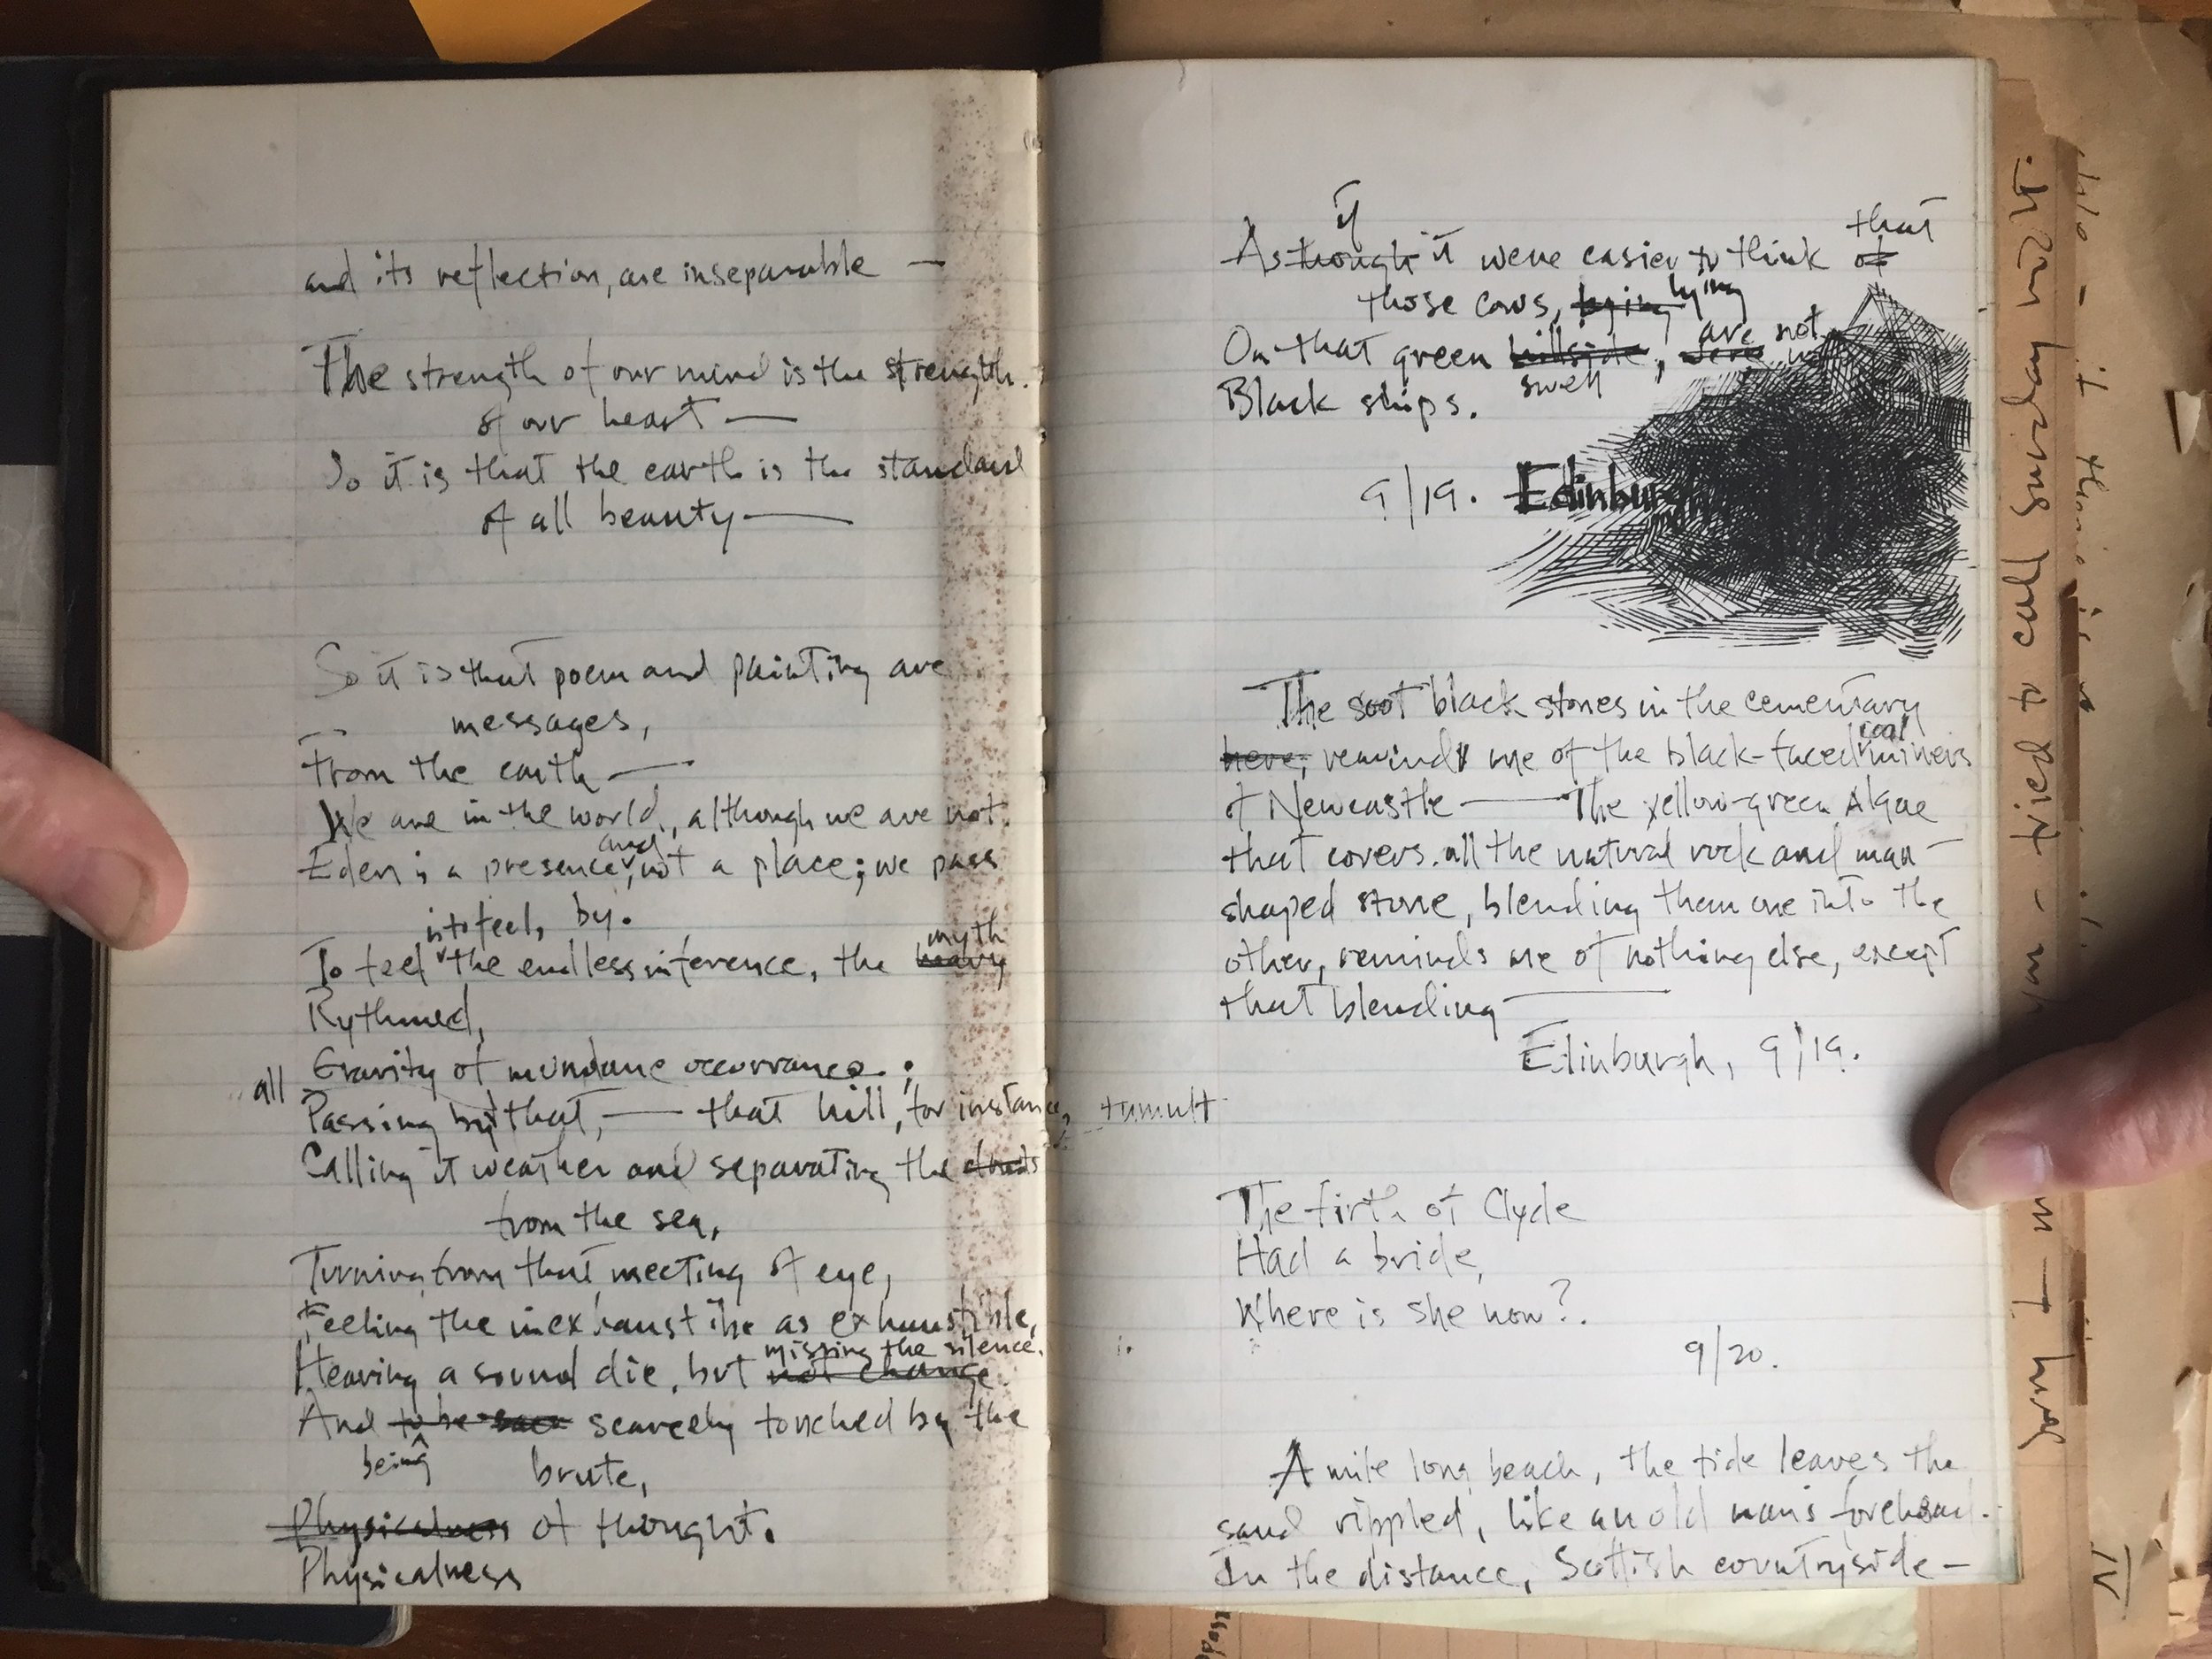 and its reflection, are inseparable —
The strength of our mind is the strength
of our heart —
So it is that the earth is the standard
of all beauty —
So it is that poem and painting are
messages,
From the earth —
We are in the world, although we are not.
and
Eden is a presence, not a place; we pass
into feel, by.
myth
To feel the endless inference, the heavy
Rythmed,
Gravity of mundane occurrance;
all
Passing by that, — that hill, for instance, tumult
Calling it weather and separating the clouds
from the sea,
Turning from that meeting of eye,
Feeling the inexhaustible as exhaustible,
missing the silence.
Hearing a sound die, but not change.
And to be scarcely touched by the
being brute,
Physicalness of thought.
Physicalness
if that
As though it were easier to think of
those cows, lying lying
are not
On that green hillside, were
swell
Black ships.
9/19. Edinburgh
The soot black stones in the cementary
coal
here, reminds me of the black-faced miners
of Newcastle — The yellow-green Algae
that covers all the natural rock and man-
shaped stone, blending them one into the
other, reminds me of nothing else, except
that blending —
Edinburgh, 9/19.
The firth of Clyde
Had a bride,
Where is she now?
9/20.
A mile long beach, the tide leaves the
sand rippled, like an old man's forehead.
In the distance, Scottish countryside —
tried to call Sunday night.
IV